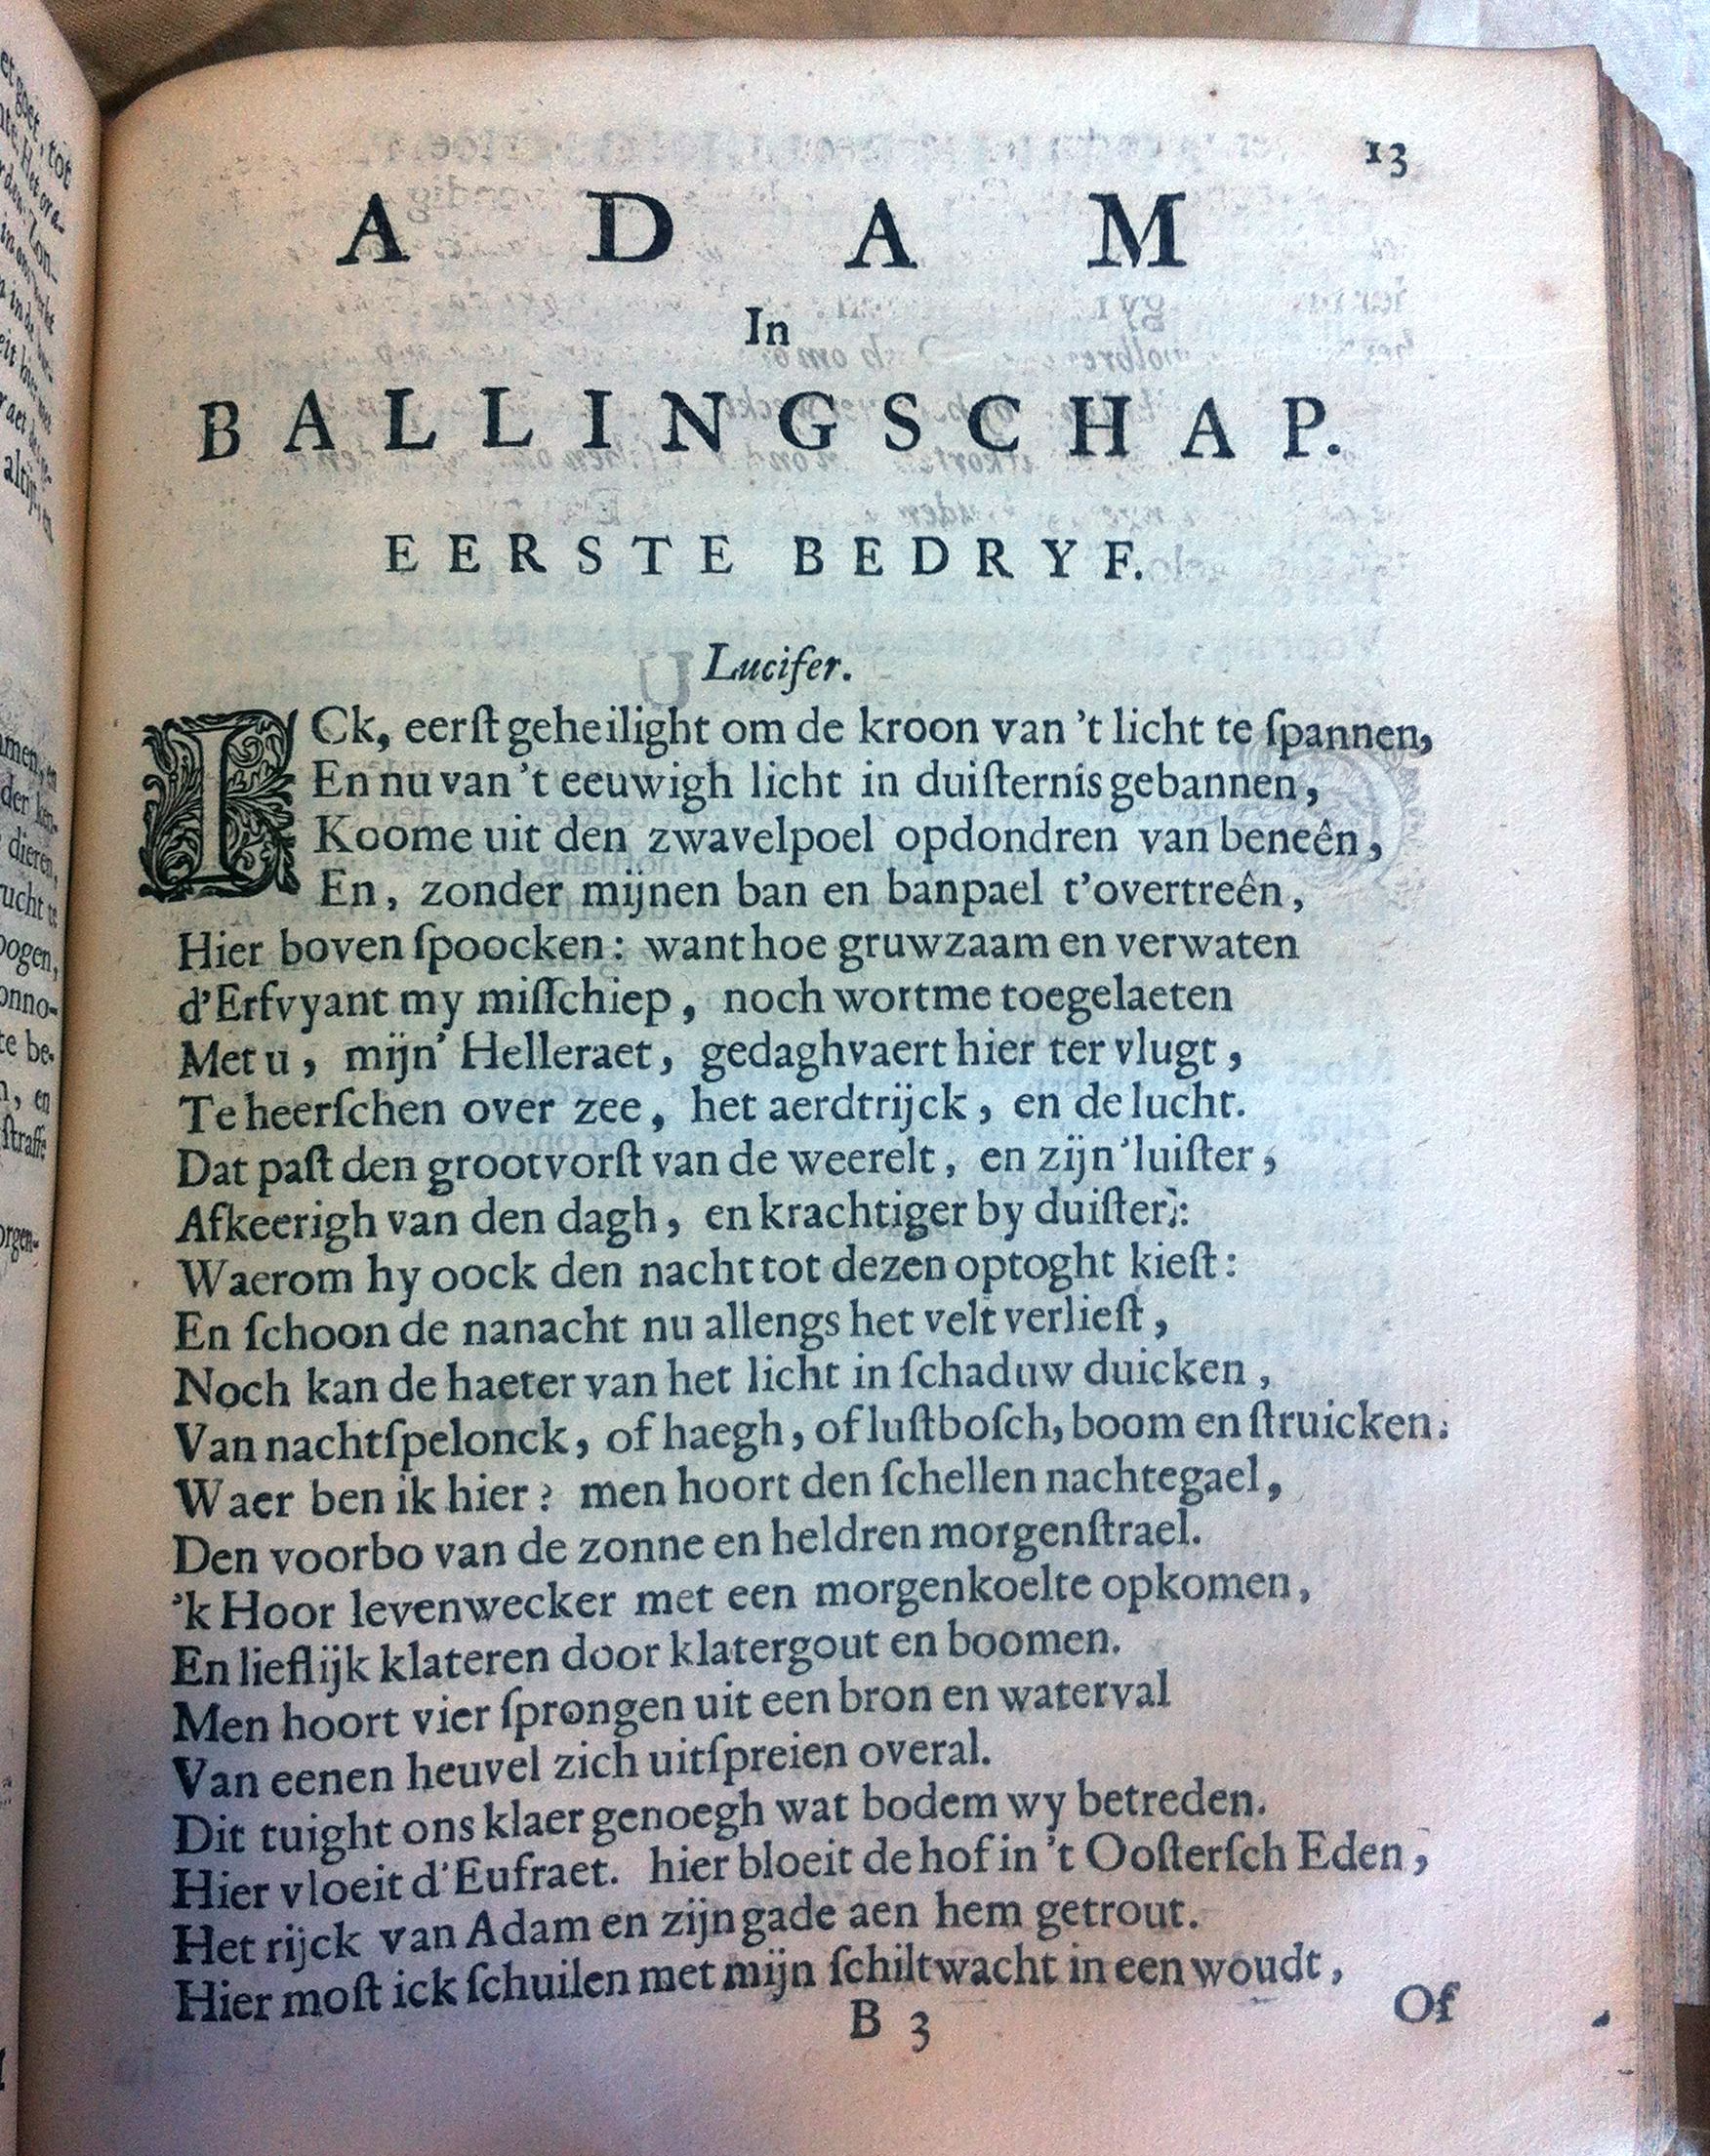 13
ADAM
In
BALLINGSCHAP.
EERSTE BEDRYF.
Lucifer.
ICk, eerſt geheilight om de kroon van 't licht te ſpannen,
En nu van 't eeuwigh licht in duiſternis gebannen,
Koome uit den zwavelpoel opdondren van beneên,
En, zonder mijnen ban en banpael t'overtreên,
Hier boven ſpoocken: want hoe gruwzaam en verwaten
d'Erfvyant my miſſchiep, noch wort me toegelaeten
Met u, mijn' Helleraet, gedaghvaert hier ter vlugt,
Te heerſchen over zee, het aerdtrijck, en de lucht.
Dat paſt den grootvorſt van de weerelt, en zijn' luiſter,
Afkeerigh van den dagh, en krachtiger by duiſter:
Waerom hy oock den nacht tot dezen optoght kieſt:
En ſchoon de nanacht nu allengs het velt verlieſt,
Noch kan de haeter van het licht in ſchaduw duicken,
Van nachtſpelonck, of haegh, of luſtboſch, boom en ſtruicken.
Waer ben ik hier? men hoort den ſchellen nachtegael,
Den voorbo van de zonne en heldren morgenſtrael.
'k Hoor levenwecker met een morgenkoelte opkomen,
En lieflijk klateren door klatergout en boomen.
Men hoort vier ſprongen uit een bron en waterval
Van eenen heuvel zich uitſpreien overal.
Dit tuight ons klaer genoegh wat bodem wy betreden.
Hier vloeit d'Eufraet. hier bloeit de hof in 't Ooſterſch Eden,
Het rijck van Adam en zijn gade aen hem getrout.
Hier moſt ick ſchuilen met mijn ſchiltwacht in een woudt,
B 3
Of